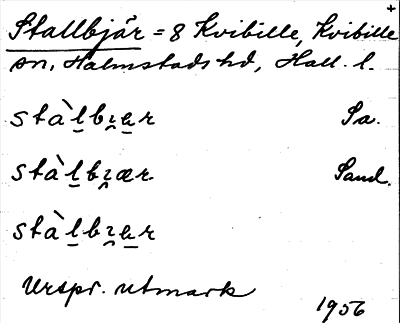 +
Stallbjär = 8 Kvibille, Kvibille
sn, Halmstads hd, Hall. l.
stàl̠bɀ̯a̠r Sa.
stàl̠bɀ̯ær Sand.
stàl̠bɀ̯a̠r
Urspr. utmark
1956